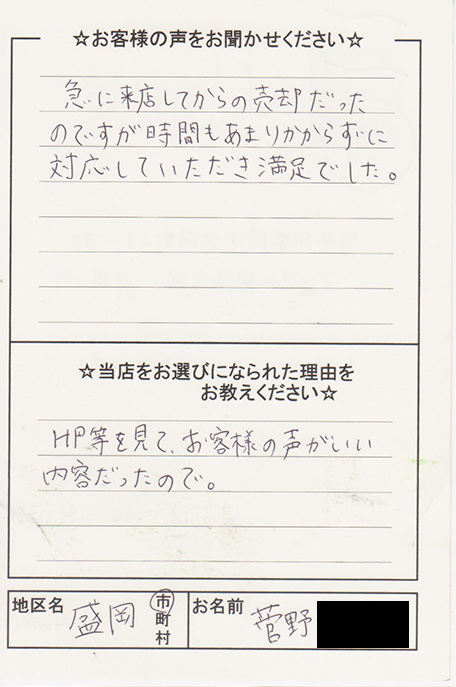 ☆お客様の声をお聞かせください☆
急に来店してからの売却だった
のですが時間もあまりかからずに
対応していただき満足でした。
☆当店をお選びになられた理由を
お教えください☆
HP等を見て、お客様の声がいい
内容だったので。
地区名 盛岡 市町村 お名前 菅野